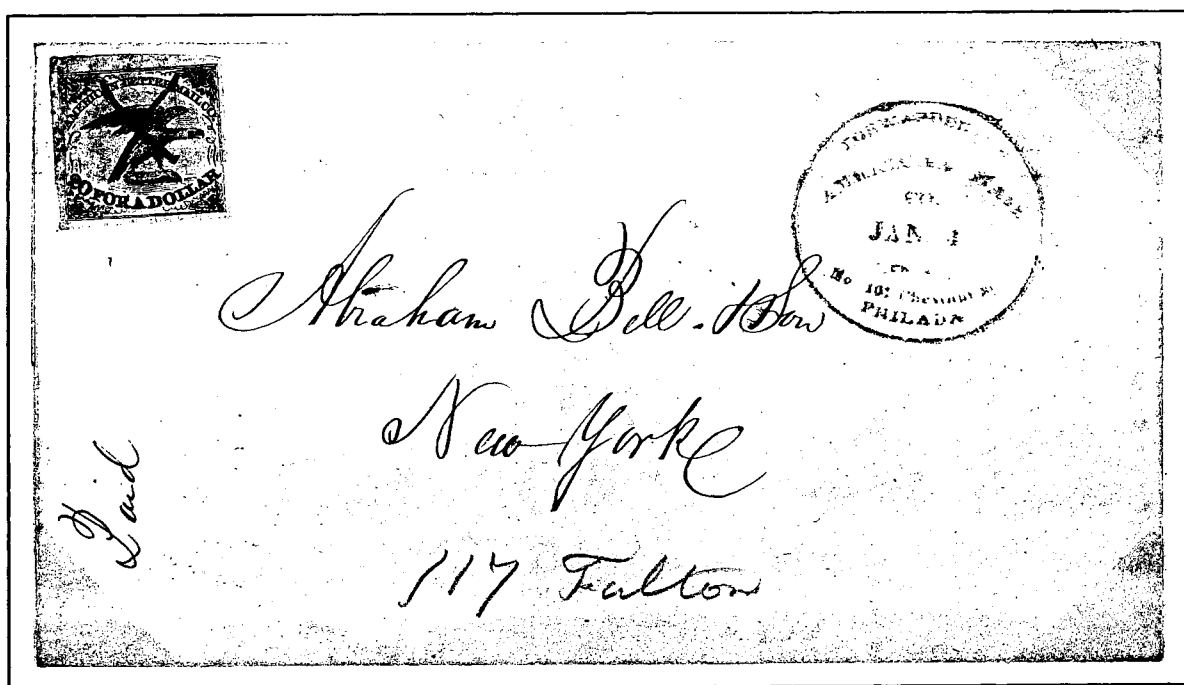 AMERICAN LETTER MAIL CO.
20 FOR A DOLLAR
FORWARDED
AMERICAN MAIL
CO'S
JAN 4
No 101 Chesnut St
PHILADA
Abraham Bell & Son
New York
117 Fulton
Paid